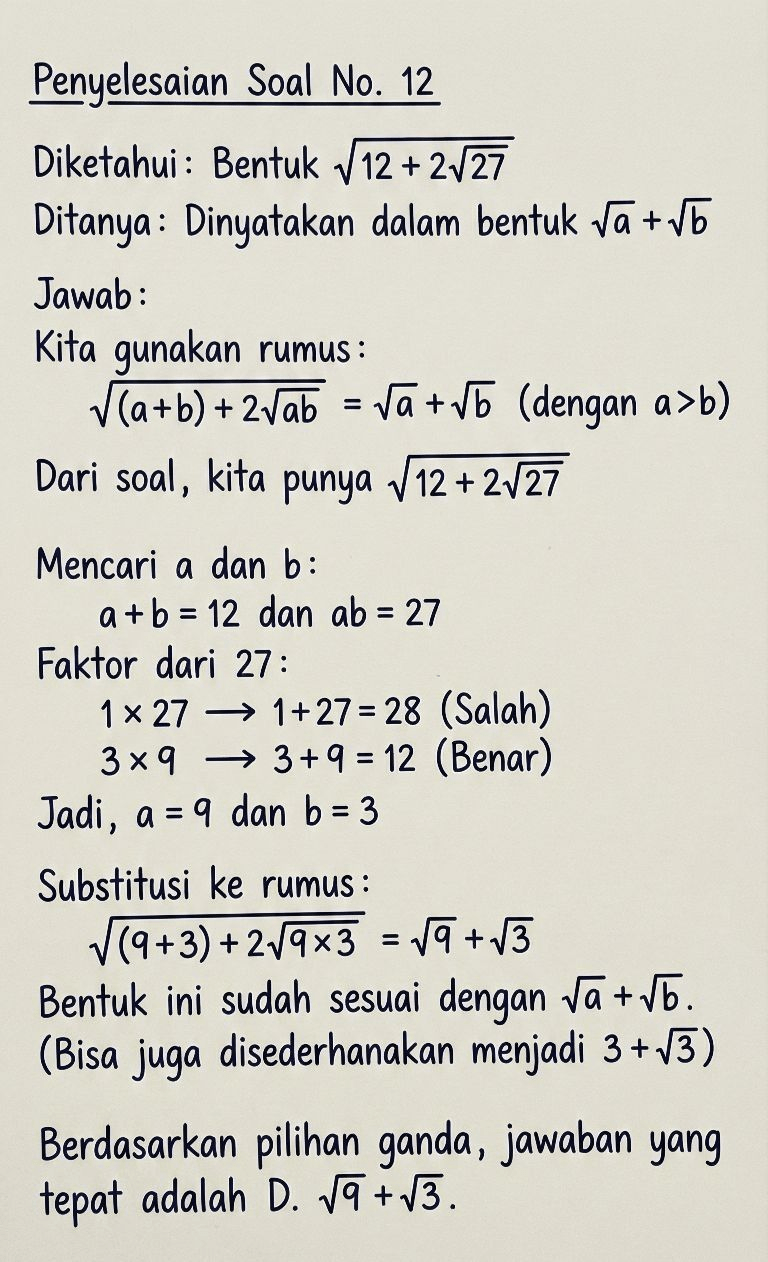 Penyelesaian Soal No. 12
Diketahui: Bentuk √(12 + 2√27)
Ditanya: Dinyatakan dalam bentuk √a + √b
Jawab:
Kita gunakan rumus:
√((a+b) + 2√ab) = √a + √b (dengan a>b)
Dari soal, kita punya √(12 + 2√27)
Mencari a dan b:
a + b = 12 dan ab = 27
Faktor dari 27:
1 × 27 → 1 + 27 = 28 (Salah)
3 × 9 → 3 + 9 = 12 (Benar)
Jadi, a = 9 dan b = 3
Substitusi ke rumus:
√((9+3) + 2√9×3) = √9 + √3
Bentuk ini sudah sesuai dengan √a + √b.
(Bisa juga disederhanakan menjadi 3 + √3)
Berdasarkan pilihan ganda, jawaban yang
tepat adalah D. √9 + √3.